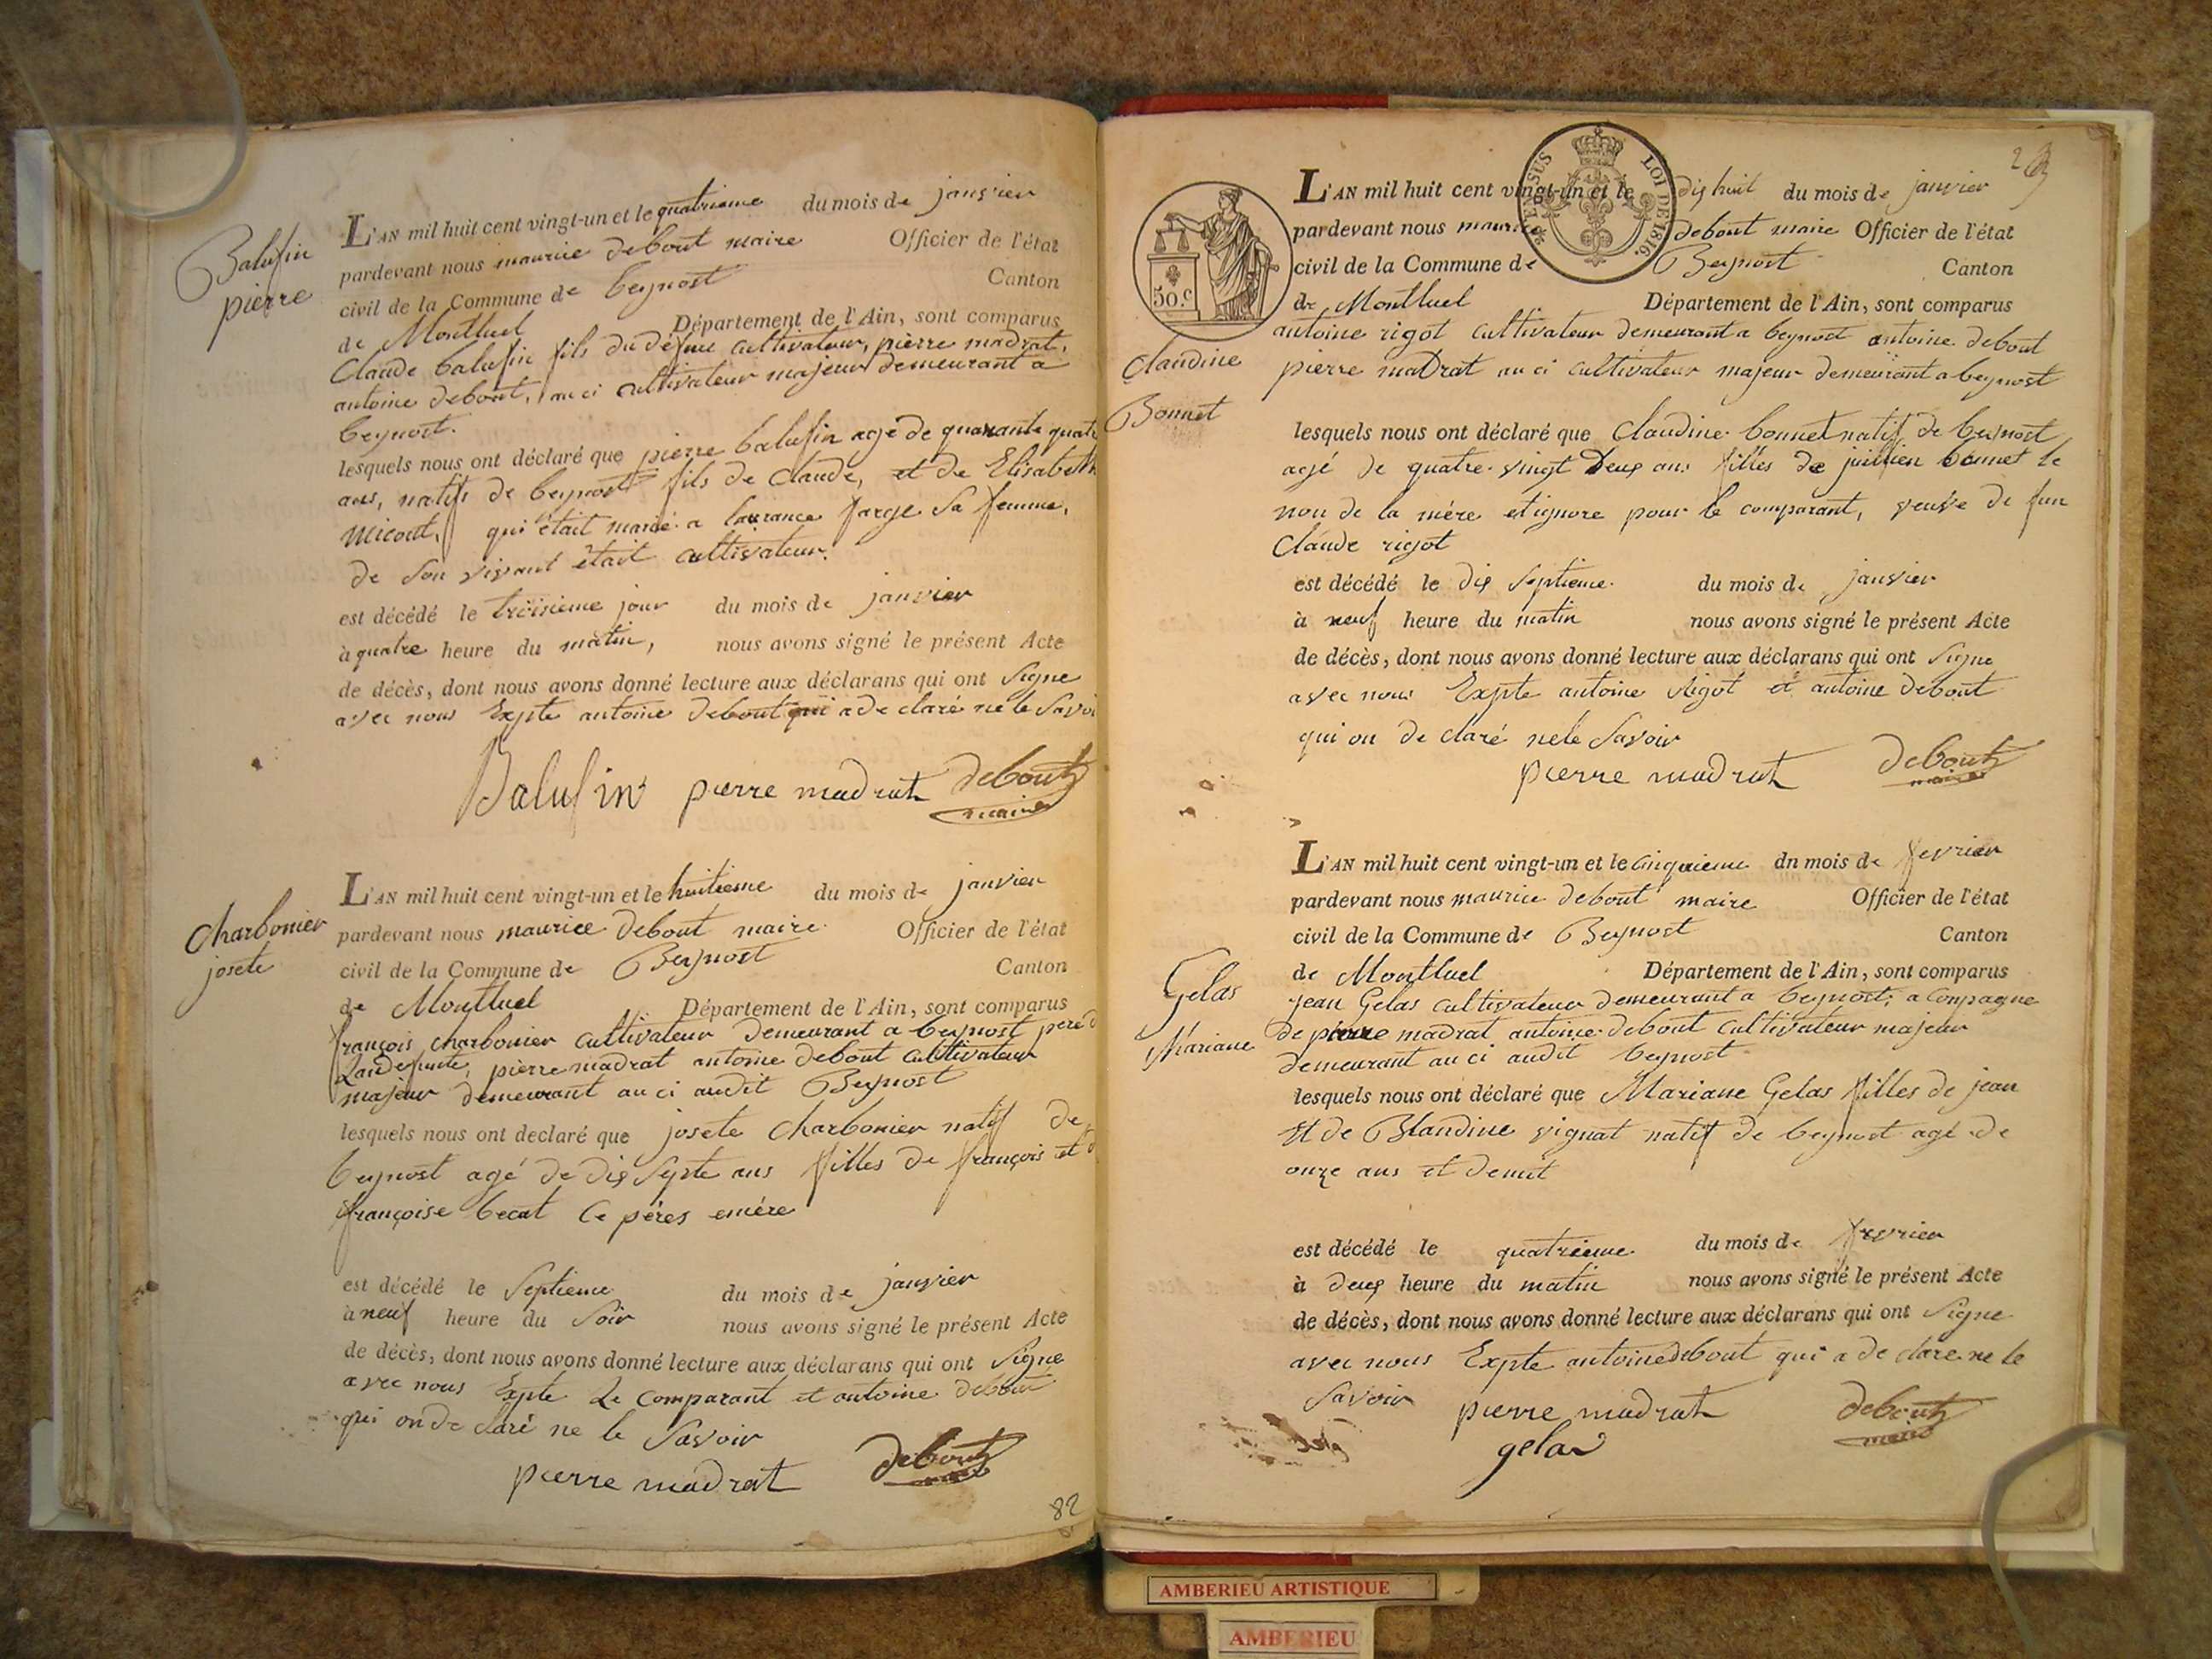 Balufin
pierre
L'AN mil huit cent vingt-un et le quatrieme du mois de janvier
pardevant nous maurice debout maire Officier de l'état
civil de la Commune de beynost Canton
de Montluel Département de l'Ain, sont comparus
Claude balufin fils du défunt cultivateur, pierre madrat,
antoine debout, auci cultivateur majeur demeurant a
beynost.
lesquels nous ont déclaré que pierre balufin agé de quarante quatr
ans, natifs de beynost fils de Claude, et de Elisabeth
Micoud, qui était marié a laurance farge Sa femme,
de Son vivant était cultivateur.
est décédé le troisieme jour du mois de janvier
à quatre heure du matin, nous avons signé le présent Acte
de décès, dont nous avons donné lecture aux déclarans qui ont Signe
avec nous Expte antoine debout qui a de claré ne le Savoi
Balufin pierre madrat debout
maire
charbonier
josete
L'AN mil huit cent vingt-un et le huitieme du mois de janvier
pardevant nous maurice debout maire Officier de l'état
civil de la Commune de Beynost Canton
de Montluel Département de l'Ain, sont comparus
françois charbonier cultivateur demeurant a beynost pere d
pierre madrat antoine debout cultivateur
majeur demeurant au ci audit Beynost
lesquels nous ont declaré que josete charbonier natif de
beynost agé de dix Septe ans filles de françois et d
françoise becat Ce péres emére
est décédé le Septieme du mois de janvier
à neuf heure du Soir nous avons signé le présent Acte
de décès, dont nous avons donné lecture aux déclarans qui ont Signe
avec nous Expte Le comparant et antoine debout
qui on de claré ne le Savoir
pierre madrat debout
maire
82
TIMBRE EXTENSUS LOI DE 1816.
50.c
Claudine
Bonnet
L'AN mil huit cent vingt-un et le dix huit du mois de janvier
pardevant nous maurice debout maire Officier de l'état
civil de la Commune de Beynost Canton
de Montluel Département de l'Ain, sont comparus
antoine rigot cultivateur demeurant a beynost antoine debout
pierre madrat au ci cultivateur majeur demeurant a beynost
lesquels nous ont déclaré que Claudine bonnet natif de beynost
agé de quatre vingt Deux ans filles de jullien bonnet le
non de la mére et ignore pour le comparant, veuve de fun
Claude rigot
est décédé le dix Septieme du mois de janvier
à neuf heure du matin nous avons signé le présent Acte
de décès, dont nous avons donné lecture aux déclarans qui ont Signe
avec nous Expte antoine Rigot et antoine debout
qui on de claré ne le Savoir
pierre madrat debout
maire
Gelas
Mariane
L'AN mil huit cent vingt-un et le cinquieme dn mois de fevrier
pardevant nous maurice debout maire Officier de l'état
civil de la Commune de Beynost Canton
de Montluel Département de l'Ain, sont comparus
jean Gelas cultivateur demeurant a beynost, a compagne
de pierre madrat antoine debout cultivateur majeur
demeurant au ci audit beynost
lesquels nous ont déclaré que Mariane Gelas filles de jean
Et de Blandine vignat natif de beynost agé de
onze ans et demit
est décédé le quatrieme du mois de fevrier
à deux heure du matin nous avons signé le présent Acte
de décès, dont nous avons donné lecture aux déclarans qui ont Signe
avec nous Expte antoine debout qui a de clare ne le
Savoir pierre madrat debout
gelas maire
AMBERIEU ARTISTIQUE
AMBERIEU